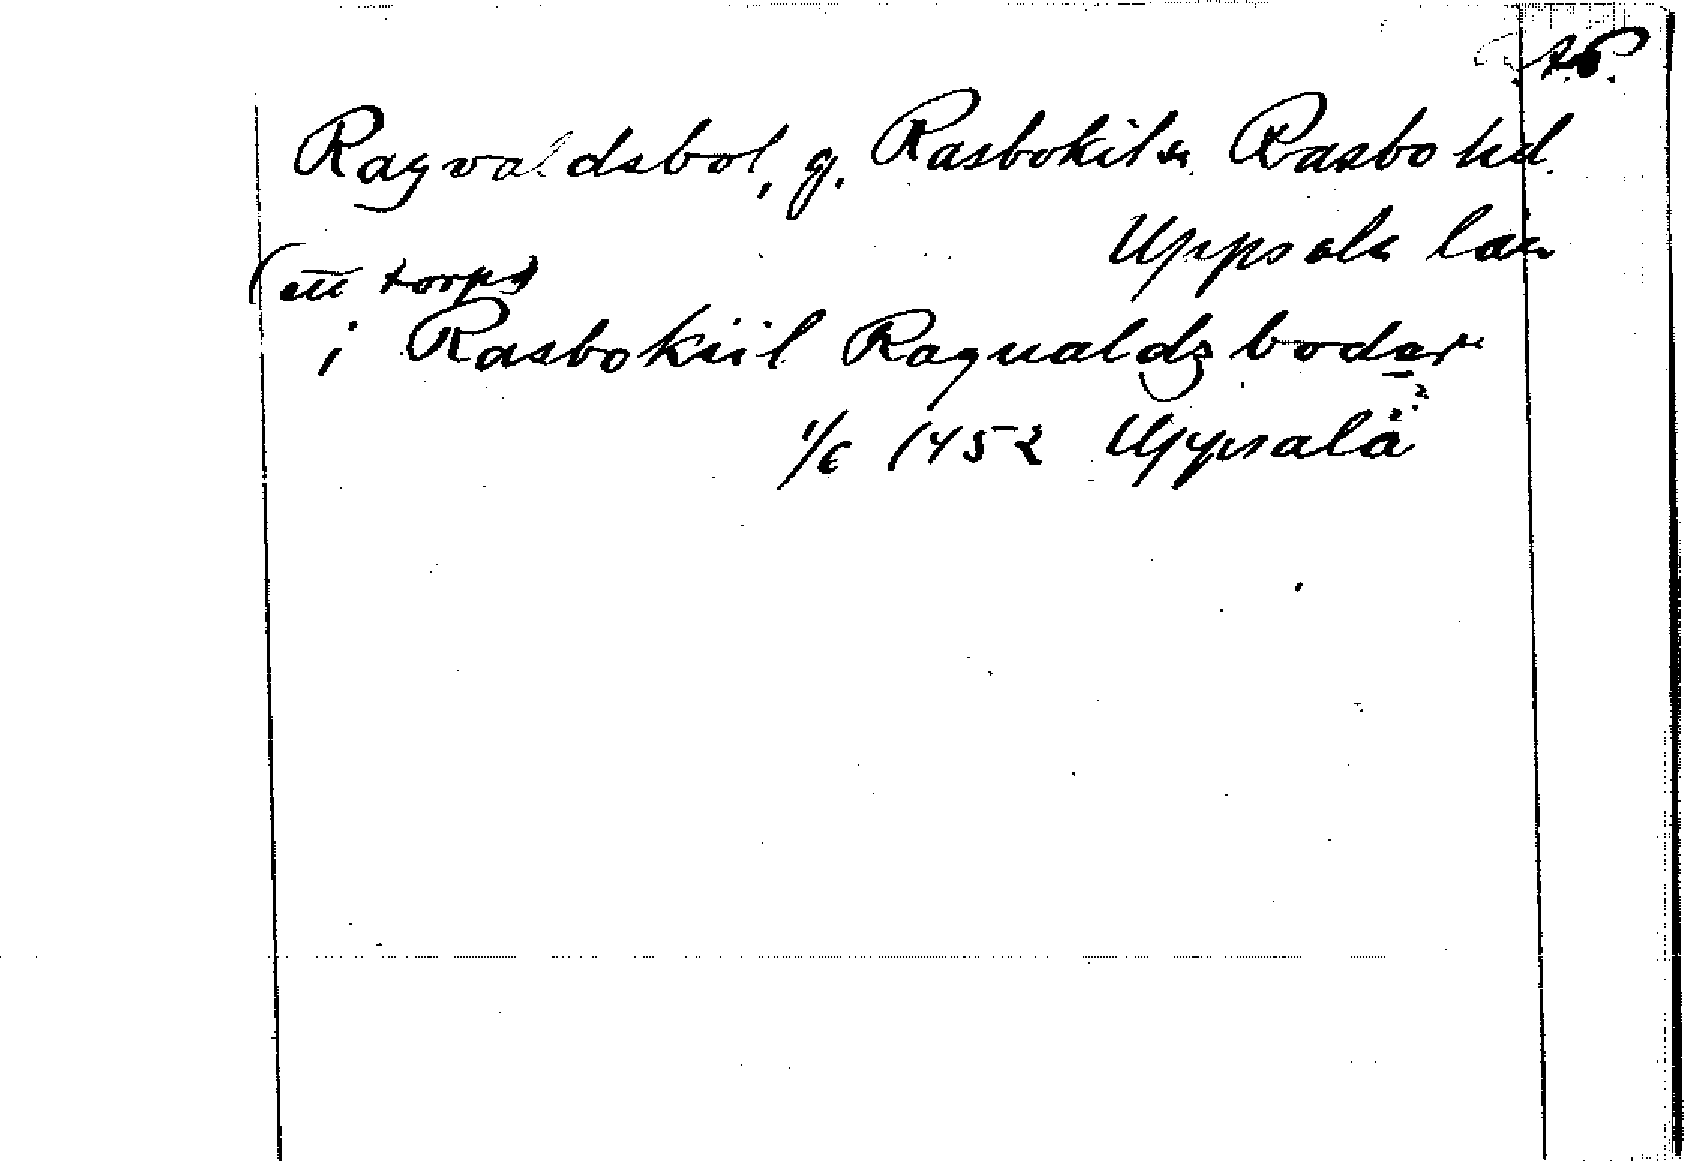 Ragvaldsbol, g. Rasbokils sn Rasbo hd.
Uppsala län
(ett torp)
i Rasbokiil Ragualdzbodar
1/6 1452 Uppsala